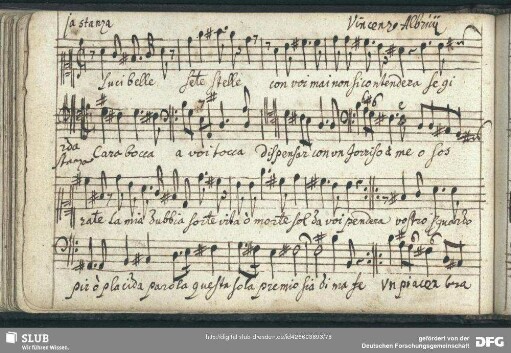 ja stanza Vincenzo Albrici
Luci belle sete stelle con voi mai non si contendera se gi
2da stanza Cara bocca a voi tocca dispensar con un sorriso à me o sos
rate la mia dubbia sorte vita ò morte sol da voi pendera vostro sguardo
pir ò placida parola questa sola premio sia di ma fe un piacer
SLUB
Wir führen Wissen.
gefördert von der
Deutschen Forschungsgemeinschaft
DFG